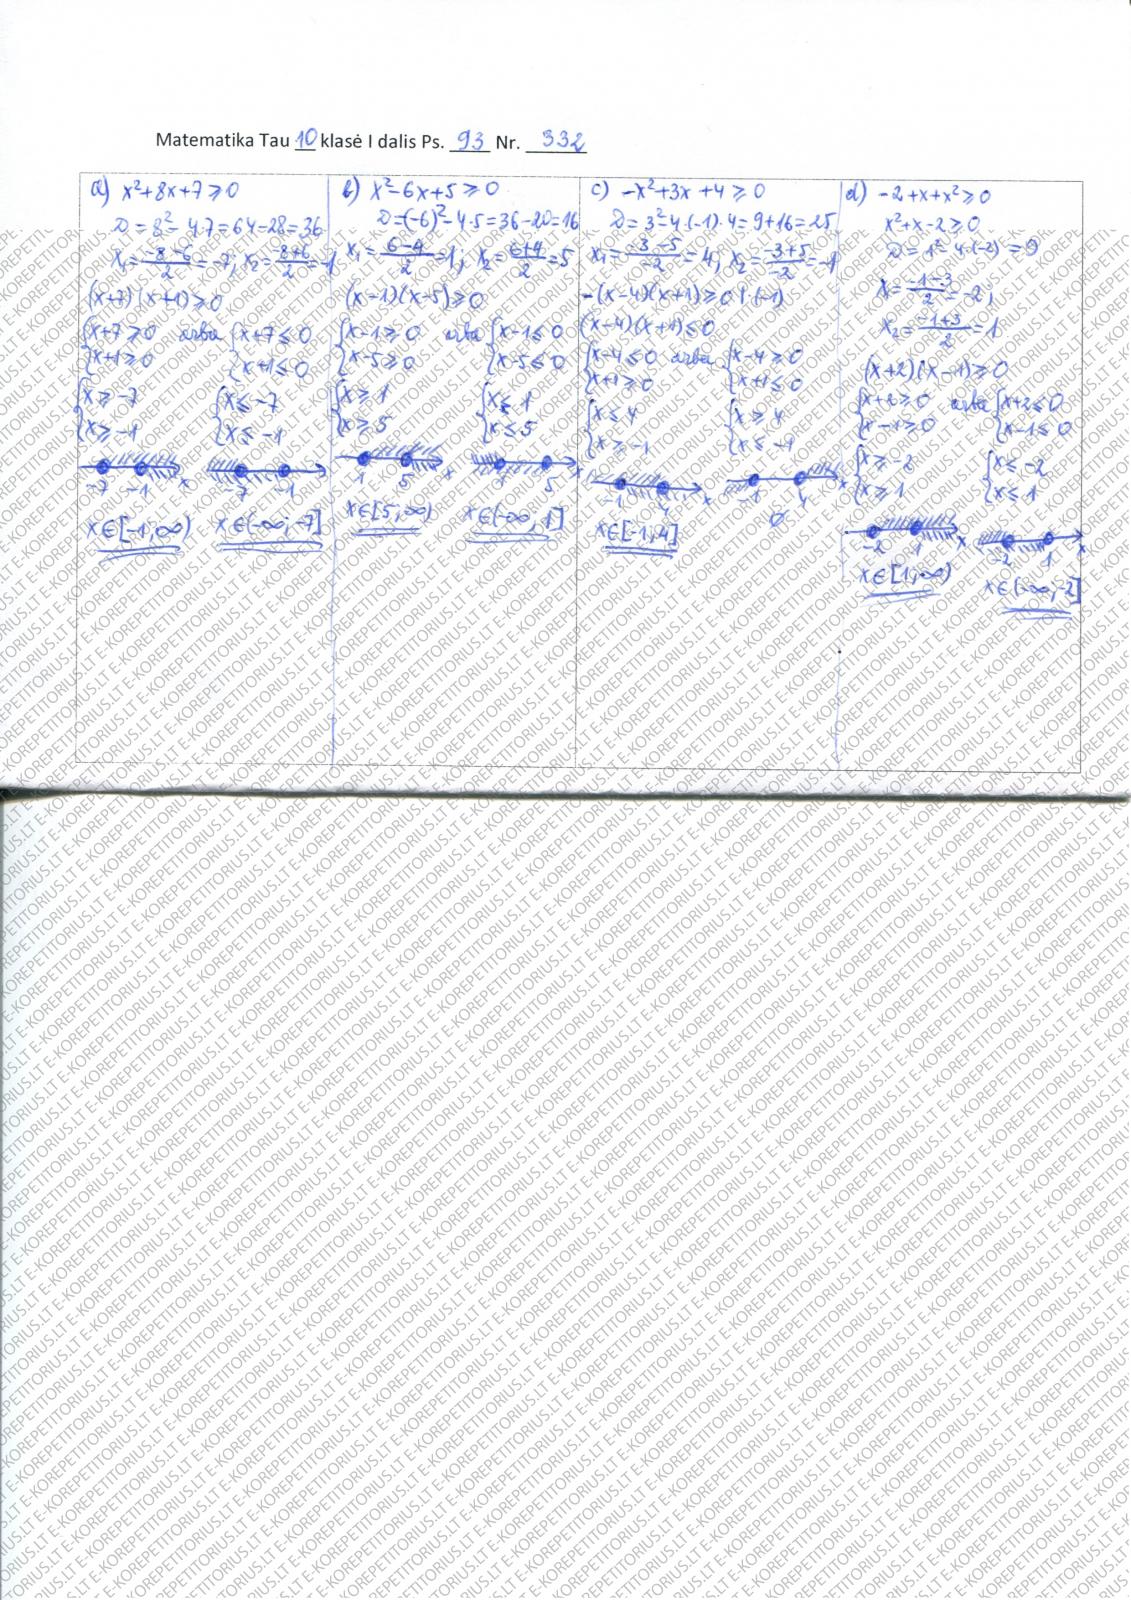 Matematika Tau 10 klasė I dalis Ps. 93 Nr. 332
a) x²+8x+7⩾0
D=8²-4·7=64-28=36
x₁=(-8-6)/2=-7; x₂=(-8+6)/2=-1
(x+7)(x+1)⩾0
{x+7⩾0 arba {x+7⩽0
{x+1⩾0 {x+1⩽0
{x⩾-7 {x⩽-7
{x⩾-1 {x⩽-1
-7 -1 x -7 -1
x∈[-1;∞) x∈(-∞;-7]
b) x²-6x+5⩾0
D=(-6)²-4·5=36-20=16
x₁=(6-4)/2=1; x₂=(6+4)/2=5
(x-1)(x-5)⩾0
{x-1⩾0 arba {x-1⩽0
{x-5⩾0 {x-5⩽0
{x⩾1 {x⩽1
{x⩾5 {x⩽5
1 5 x 1 5 x
x∈[5;∞) x∈(-∞,1]
c) -x²+3x+4⩾0
D=3²-4·(-1)·4=9+16=25
x₁=(-3-5)/-2=4; x₂=(-3+5)/-2=-1
-(x-4)(x+1)⩾0 |·(-1)
(x-4)(x+1)⩽0
{x-4⩽0 arba {x-4⩾0
{x+1⩾0 {x+1⩽0
{x⩽4 {x⩾4
{x⩾-1 {x⩽-1
-1 4 x -1 4 x
x∈[-1;4] ∅
d) -2+x+x²⩾0
x²+x-2⩾0
D=1²-4·(-2)=9
x₁=(-1-3)/2=-2;
x₂=(-1+3)/2=1
(x+2)(x-1)⩾0
{x+2⩾0 arba {x+2⩽0
{x-1⩾0 {x-1⩽0
{x⩾-2 {x⩽-2
{x⩾1 {x⩽1
-2 1 x -2 1 x
x∈[1;∞) x∈(-∞;-2]
E-KOREPETITORIUS.LT